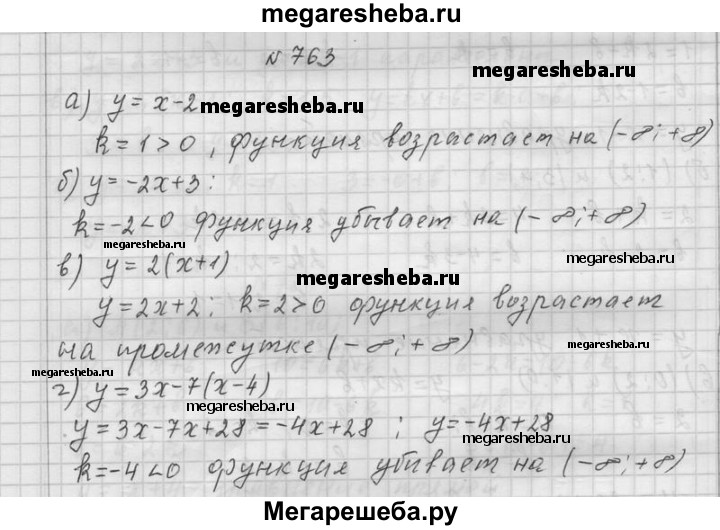 megaresheba.ru
№ 763
megaresheba.ru
а) y = x-2
megaresheba.ru
k = 1 > 0, функция возрастает на (-∞; +∞)
б) y = -2x+3:
k = -2 < 0 функция убывает на (-∞; +∞)
megaresheba.ru
megaresheba.ru
в) y = 2(x+1)
megaresheba.ru
y = 2x+2; k = 2 > 0 функция возрастает
на промежутке (-∞; +∞)
megaresheba.ru
megaresheba.ru
г) y = 3x-7(x-4)
megaresheba.ru
y = 3x-7x+28 = -4x+28; y = -4x+28
megaresheba.ru
k = -4 < 0 функция убивает на (-∞; +∞)
Мегарешеба.ру